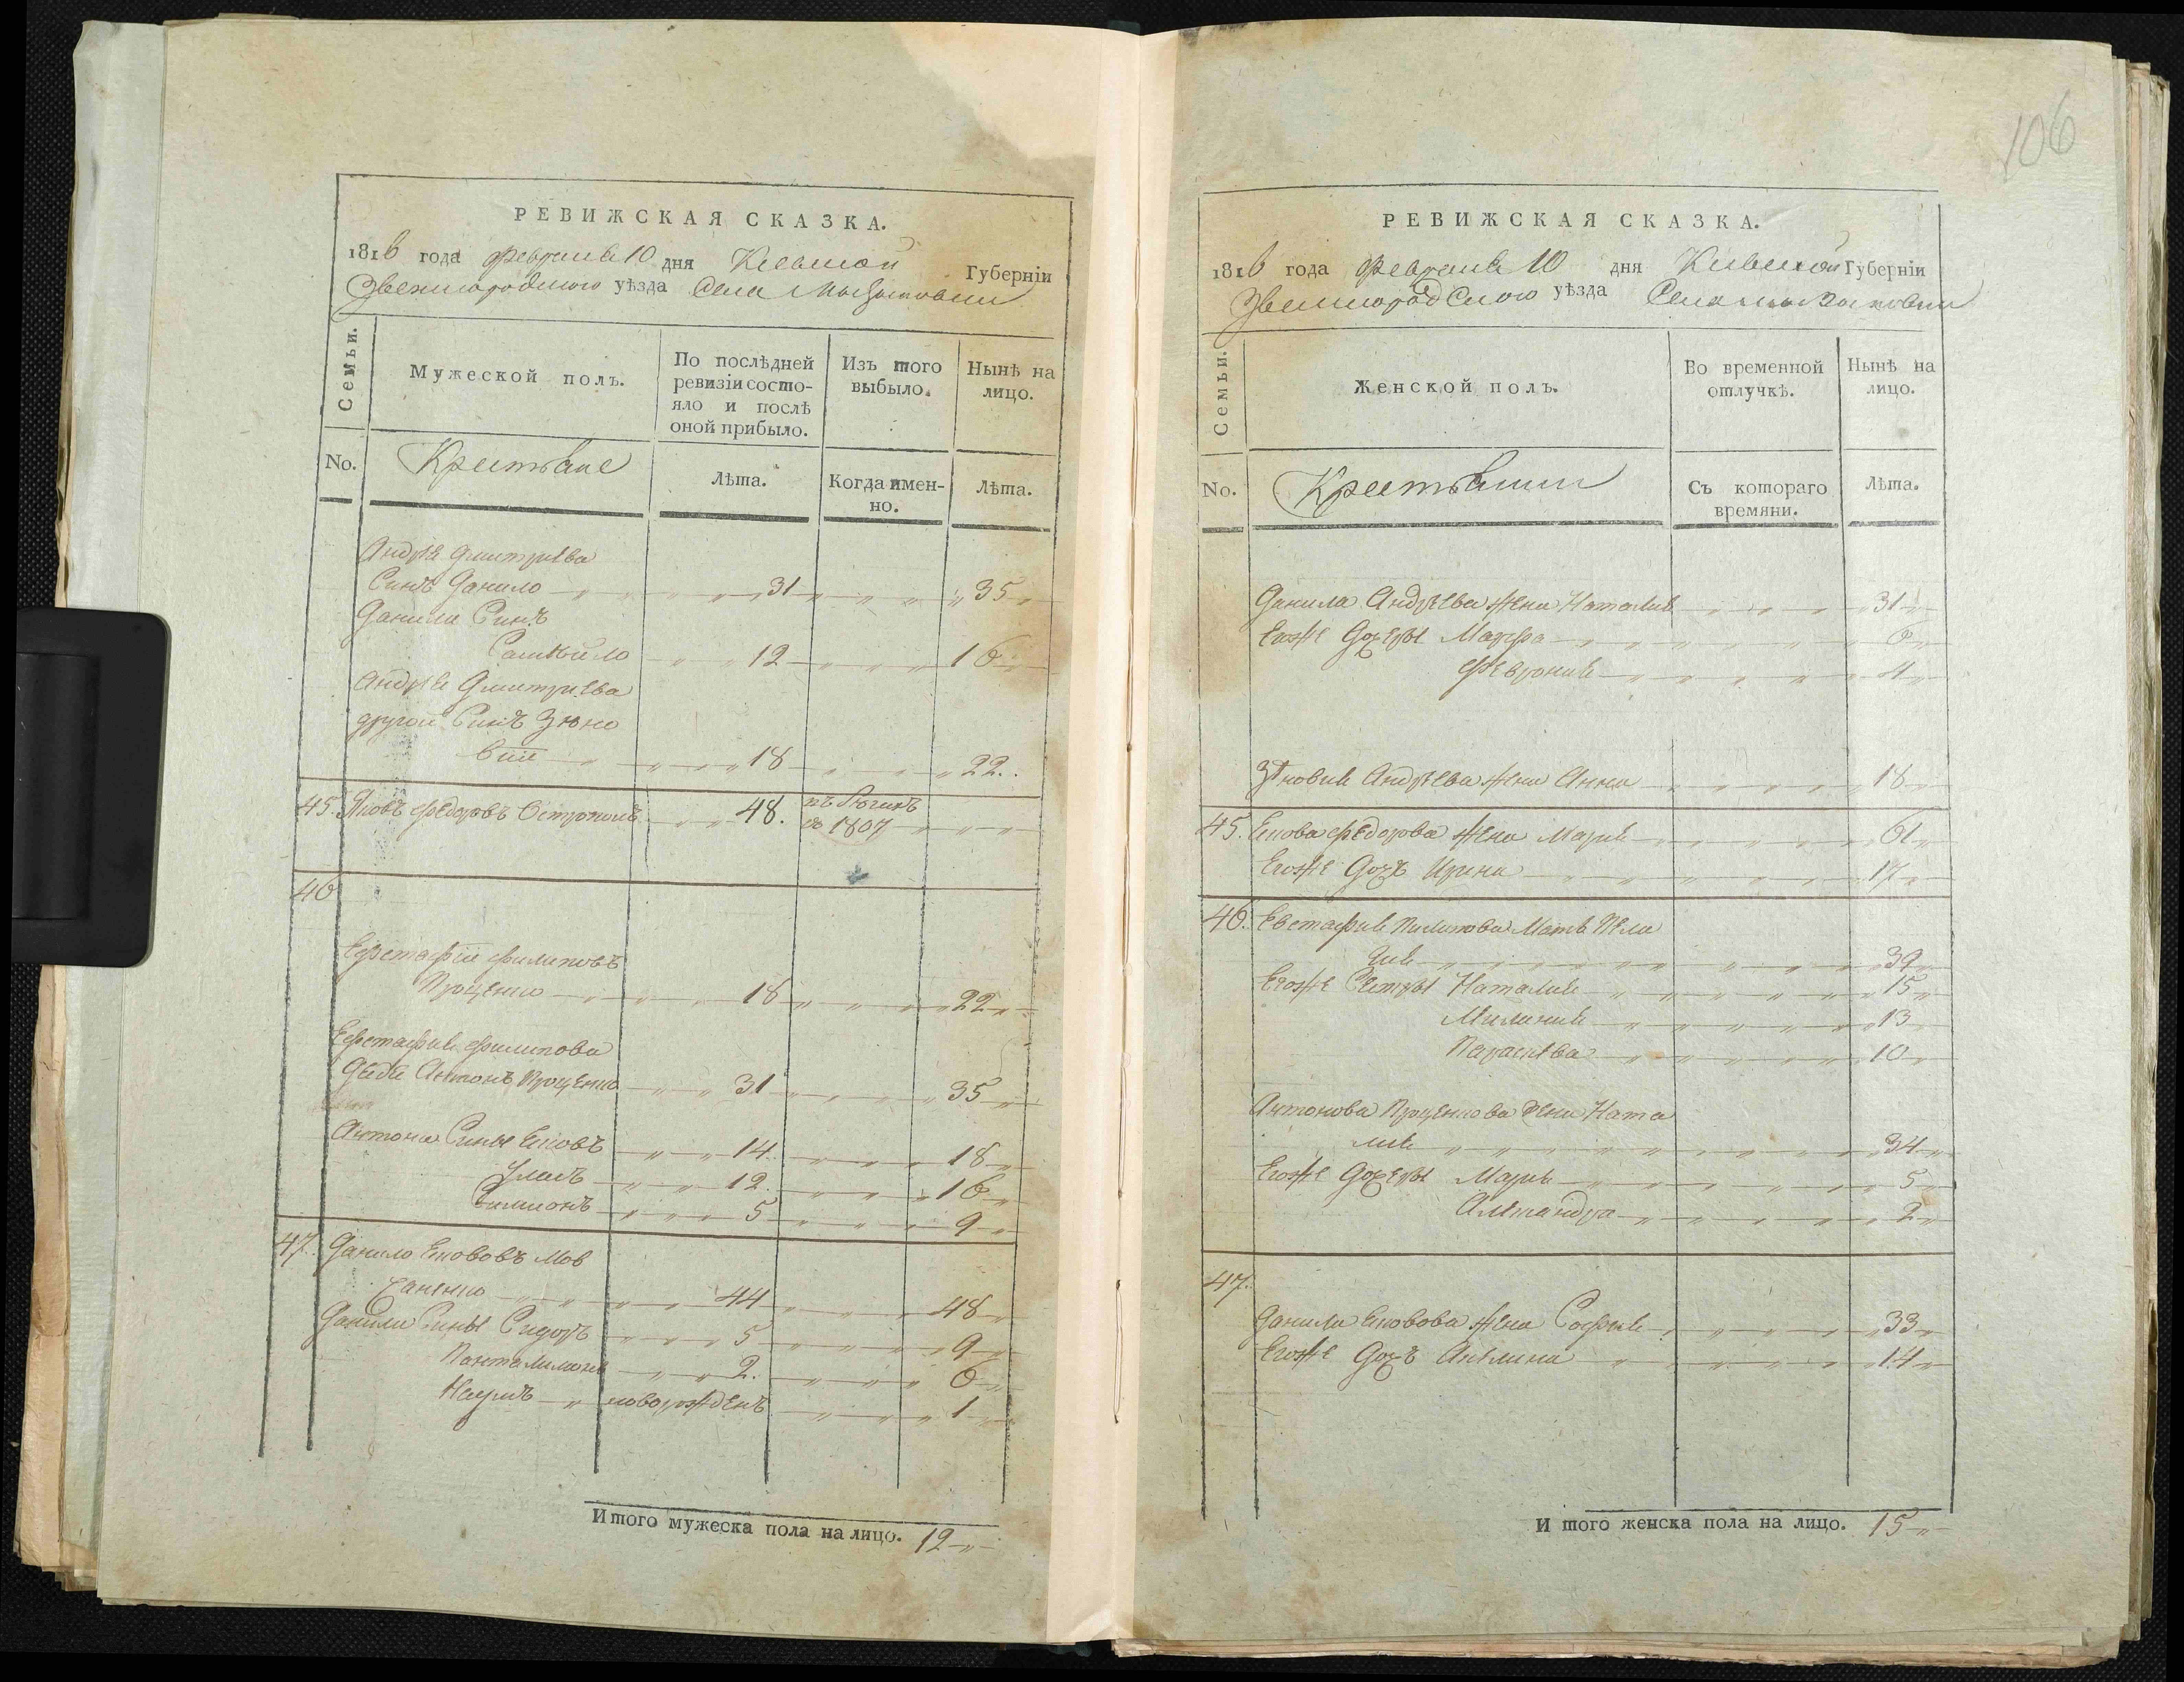 106
РЕВИЖСКАЯ СКАЗКА.
1816 года Февраля 10 дня Киевской Губерніи
Звенигородского уѣзда Села
Семьи.
Мужеской полъ.
По послѣдней ревизіи состо-
яло и послѣ
оной прибыло.
Изъ того
выбыло.
Нынѣ на
лицо.
No.
Крестьяне
Лѣта.
Когда имен-
но.
Лѣта.
Андрѣя Дмитриева
Синъ Данило 31 35
Данила Синъ
Самойло 12 16
Андрѣя Дмитриева
другой Синъ Зѣно
вій 18 22
45. Яковъ Федоровъ 48. 1807
46
Ефстафій Филиповъ
Проценко 18 22
Ефстафия Филипова
Дядя Антонъ Проценко 31 35
Антона Сины Яковъ 14 18
Уласъ 12 16
Симионъ 5 9
47. Данило Якововъ Мов
чаненко 44 48
Данила Сины Сидоръ 5 9
Понталимонъ 2. 6
Наумъ новорожденъ 1
Итого мужеска пола на лицо. 12
РЕВИЖСКАЯ СКАЗКА.
1816 года Февраля 10 дня Киевской Губерніи
Звенигородского уѣзда Села
Семьи.
Женской полъ.
Во временной
отлучкѣ.
Нынѣ на
лицо.
No.
Крестьянки
Съ котораго
времяни.
Лѣта.
Данила Андрѣева жена Наталия 31
Егоже дочеры Марфа 6
Феврония 4
Зѣновия Андрѣева жена Анна 18
45. Якова Федорова жена Мария 61
Егоже дочъ Ирина 17
46. Евстафия Пилипова Мать Пела
гия 39
Егоже Сестры Наталия 15
Милания 13
Параскева 10
Антонова Проценкова жена Ната
лия 34
Егоже дочеры Мария 5
Александра 2
47.
Данила Яковова жена София 33
Егоже дочъ Акилина 14
Итого женска пола на лицо. 15